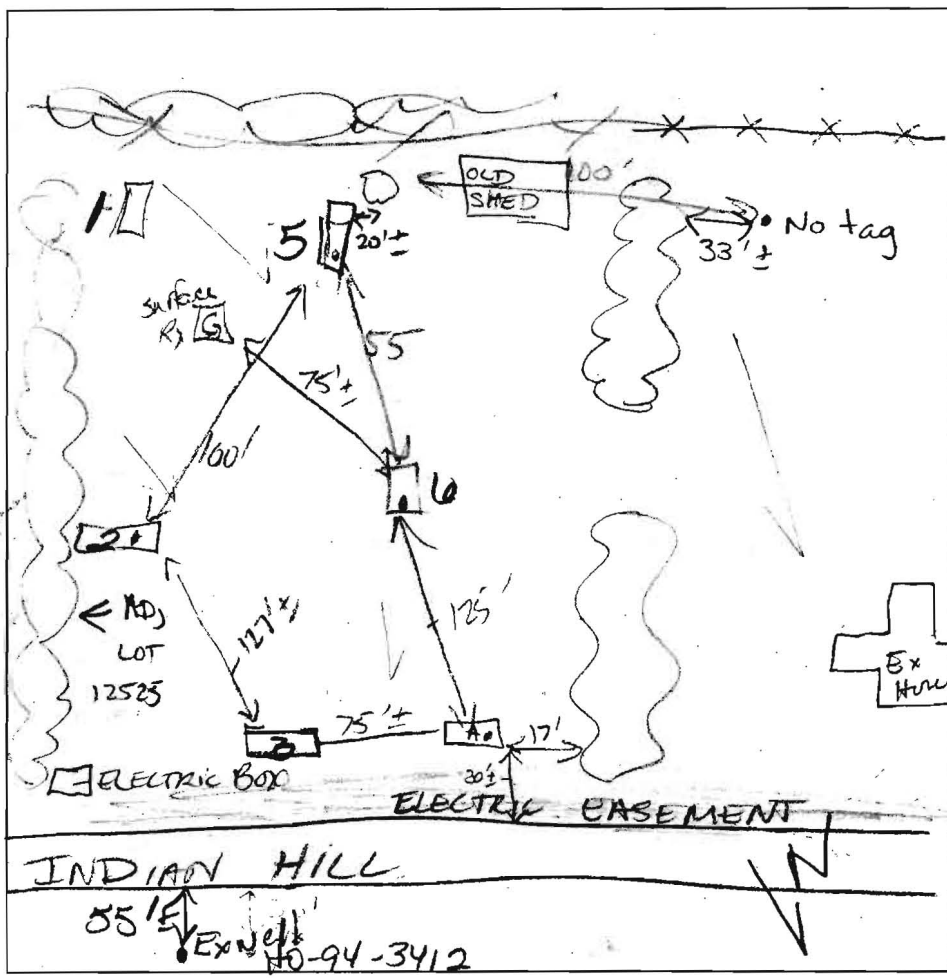 1
OLD
SHED
100'
No tag
33'±
5
20'±
surface
G
55
75'±
100'
6
2
← ADJ
LOT
12525
127'
125'
Ex
75'±
17'
3
A
ELECTRIC BOX
20'±
ELECTRIC EASEMENT
INDIAN HILL
N
55'
Ex Well
HO-94-3412